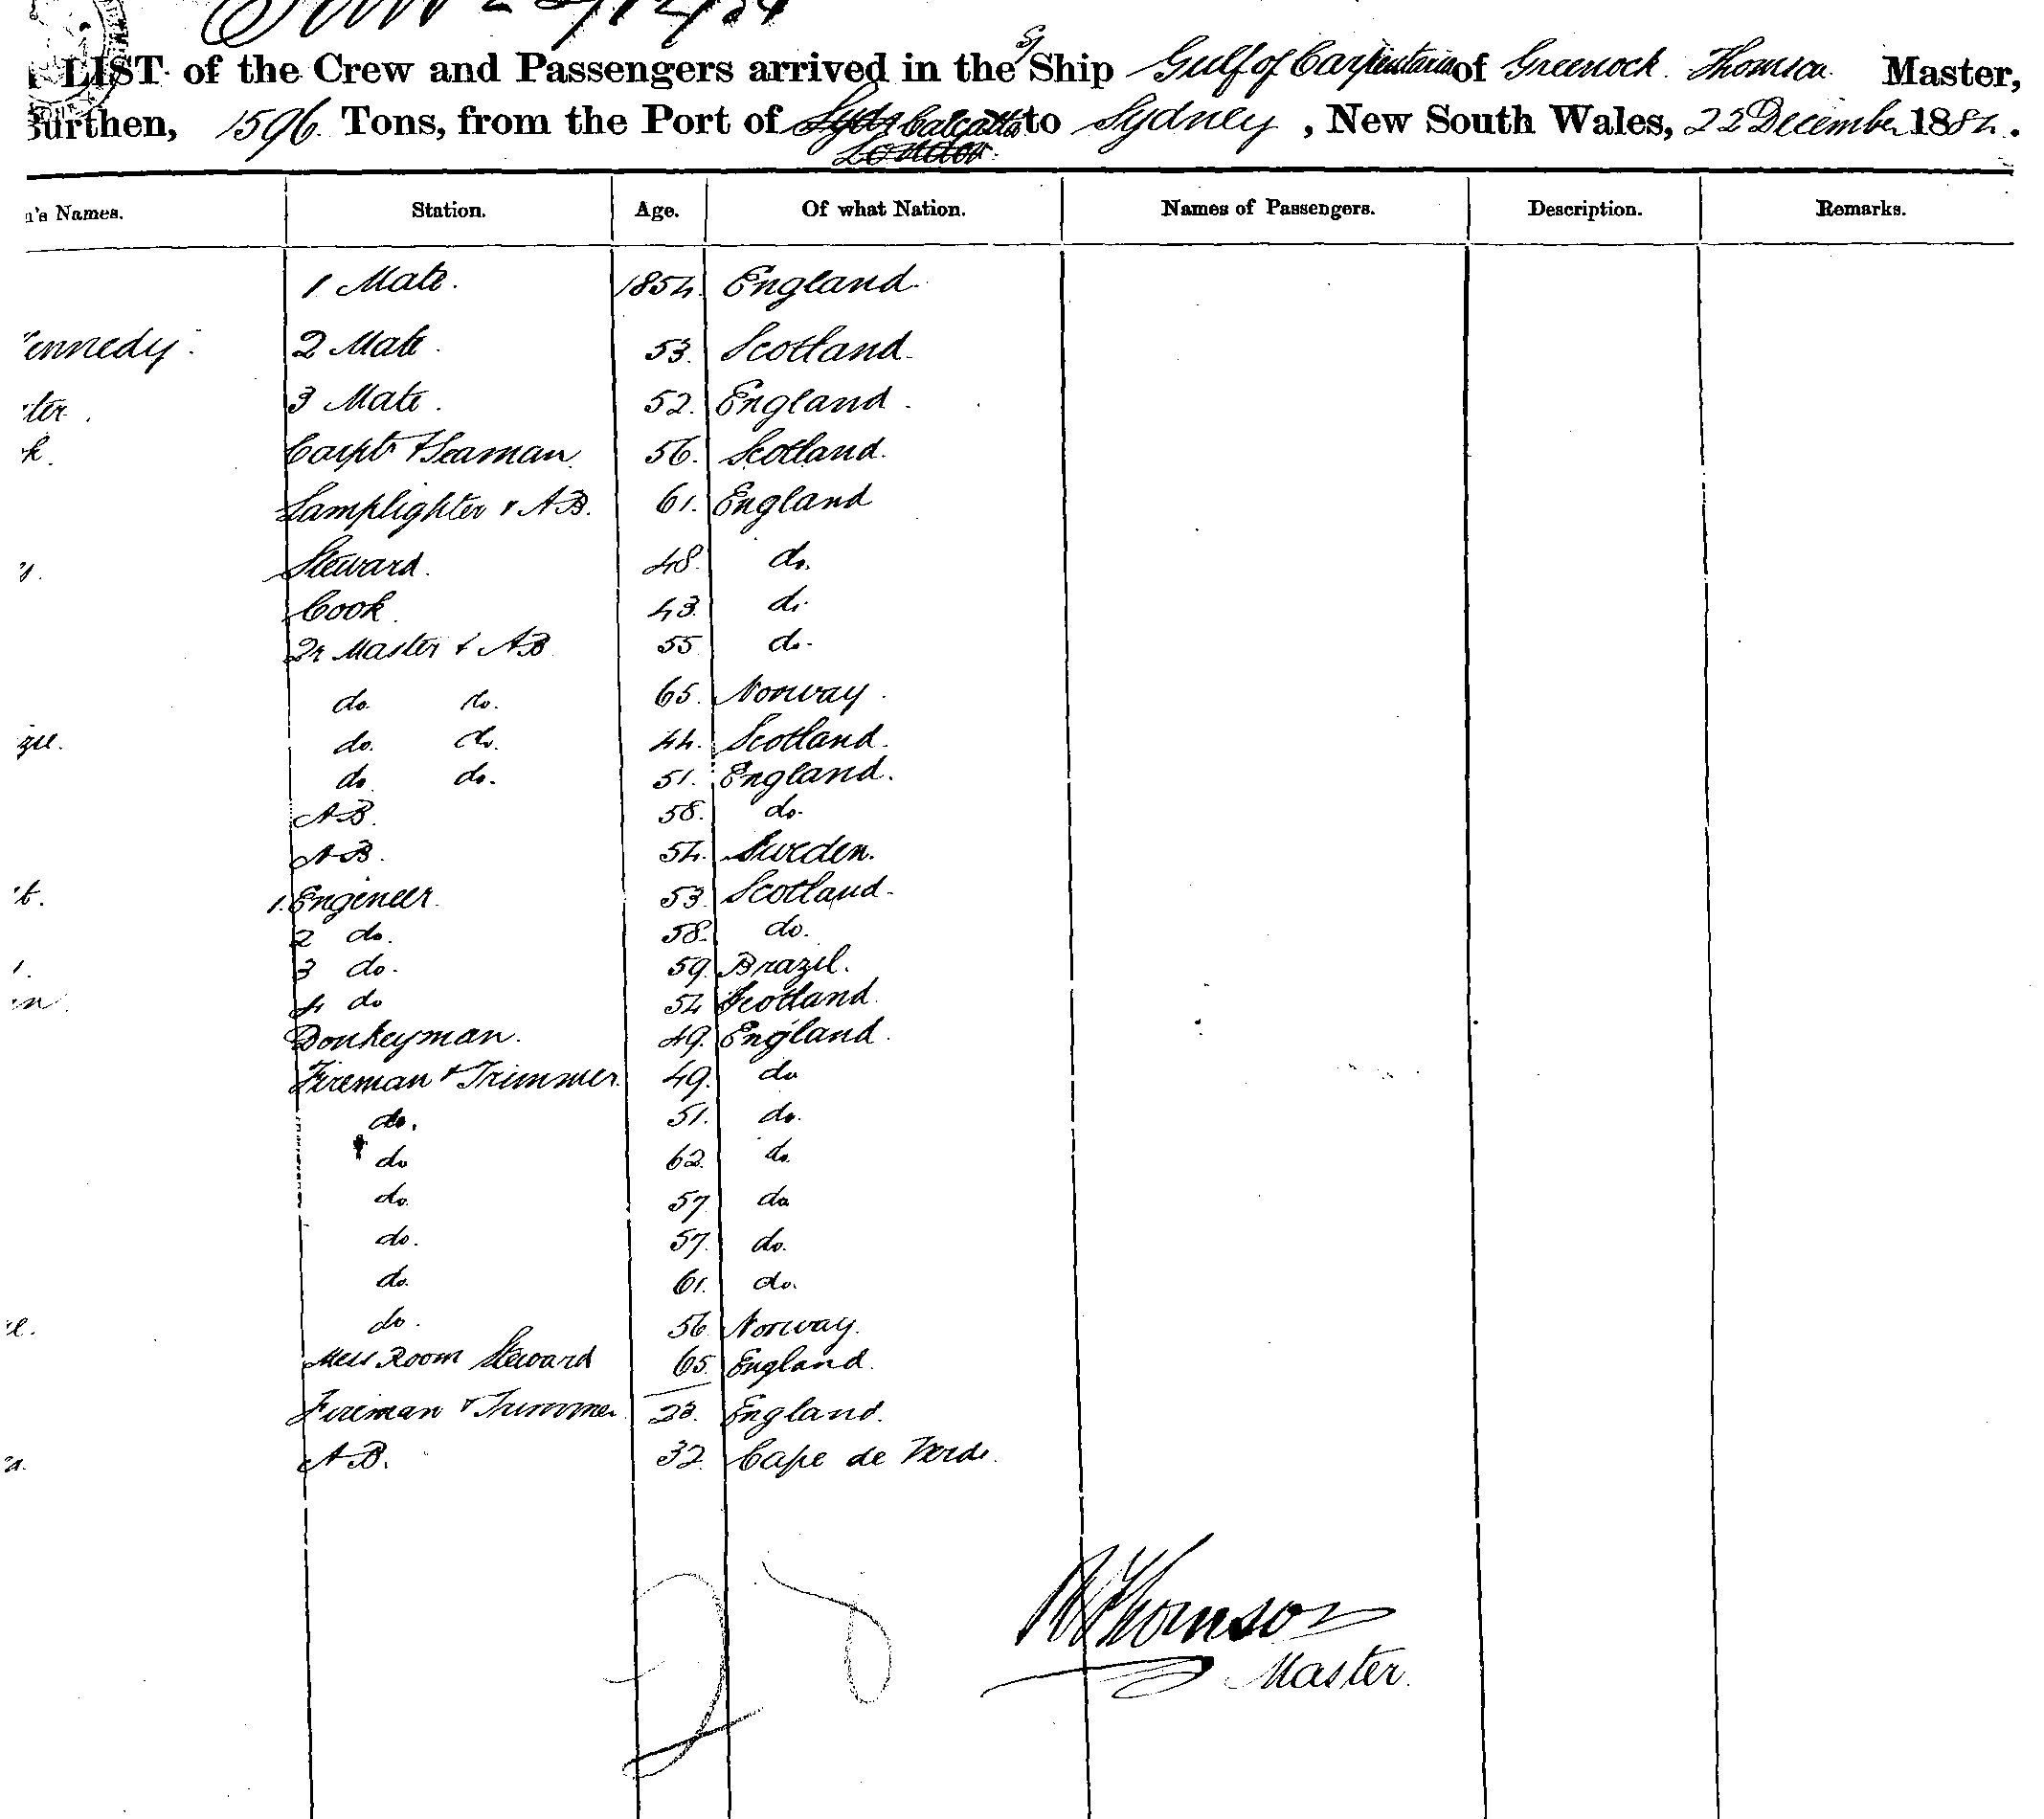 LIST of the Crew and Passengers arrived in the S/ Ship Gulf of Carpentaria of Greenock Thomson Master,
Burthen, 1596 Tons, from the Port of Calcutta London to Sydney, New South Wales, 22 December 1884.
's Names. Station. Age. Of what Nation. Names of Passengers. Description. Remarks.
1 Mate. 1854. England.
Kennedy. 2 Mate. 53. Scotland.
ter. 3 Mate. 52. England.
k. Carptr & Seaman. 56. Scotland.
Lamplighter & AB. 61. England
y. Steward. 48. do.
Cook. 43. do.
Qr Master & AB 55 do.
do. do. 65. Norway.
zie. do. do. 44. Scotland.
do. do. 51. England.
AB. 58. do.
AB. 54. Sweden.
t. 1. Engineer. 53. Scotland.
2 do. 58. do.
3 do. 59. Brazil.
n. 4 do 54 Scotland.
Donkeyman. 49. England.
Fireman & Trimmer. 49. do
do. 51. do.
do 62. do.
do. 57 do
do. 57. do.
do. 61. do.
do. 56. Norway.
Mess Room Steward 65. England.
Fireman & Trimmer. 23. England.
a. AB. 32. Cape de Verde.
28
Thomson
Master.